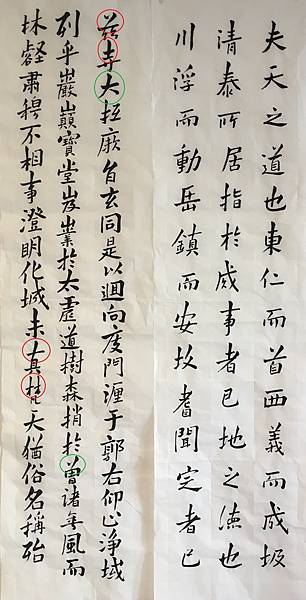 夫天之道也東仁而首西義而成故
清泰所居指於成事者已地之德也
川浮而動岳鎮而安故耆聞定者已
茲寺大抵厥旨玄同是以迴向度門于郭右仰止淨域
列乎巖巔寶堂岌嶪於太虛道樹森梢於曾諸無風而
林壑肅穆不相事澄明化城未真梵天猶俗名稱殆